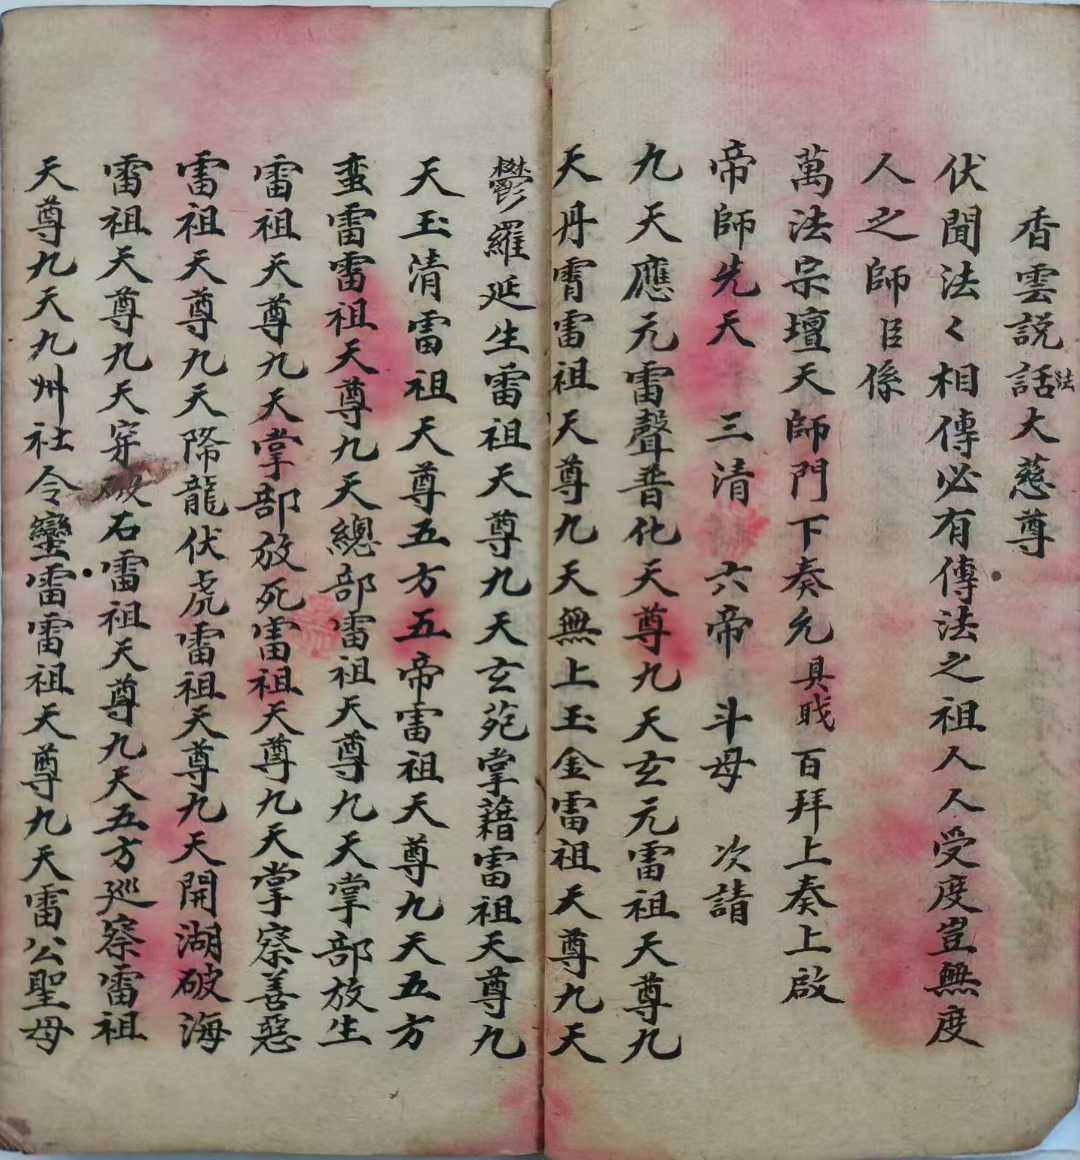 香雲説話法大慈尊
伏聞法〻相傳必有傳法之祖人人受度豈無度
人之師臣係
萬法宗壇天師門下奏允具戝百拜上奏上啟
帝師先天 三清 六帝 斗母 次請
九天應元雷聲普化天尊九天玄元雷祖天尊九
天丹霄雷祖天尊九天無上玉金雷祖天尊九天
鬱羅延生雷祖天尊九天玄苑掌籍雷祖天尊九
天玉清雷祖天尊五方五帝雷祖天尊九天五方
蛮雷雷祖天尊九天總部雷祖天尊九天掌部放生
雷祖天尊九天掌部放死雷祖天尊九天掌察善惡
雷祖天尊九天降龍伏虎雷祖天尊九天開湖破海
雷祖天尊九天穿破石雷祖天尊九天五方巡察雷祖
天尊九天九州社令蠻雷雷祖天尊九天雷公聖母